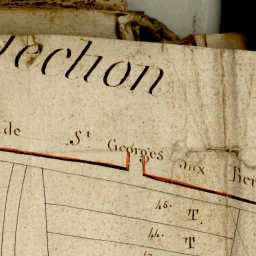 ection
de St Georges aux
46. T
44. T